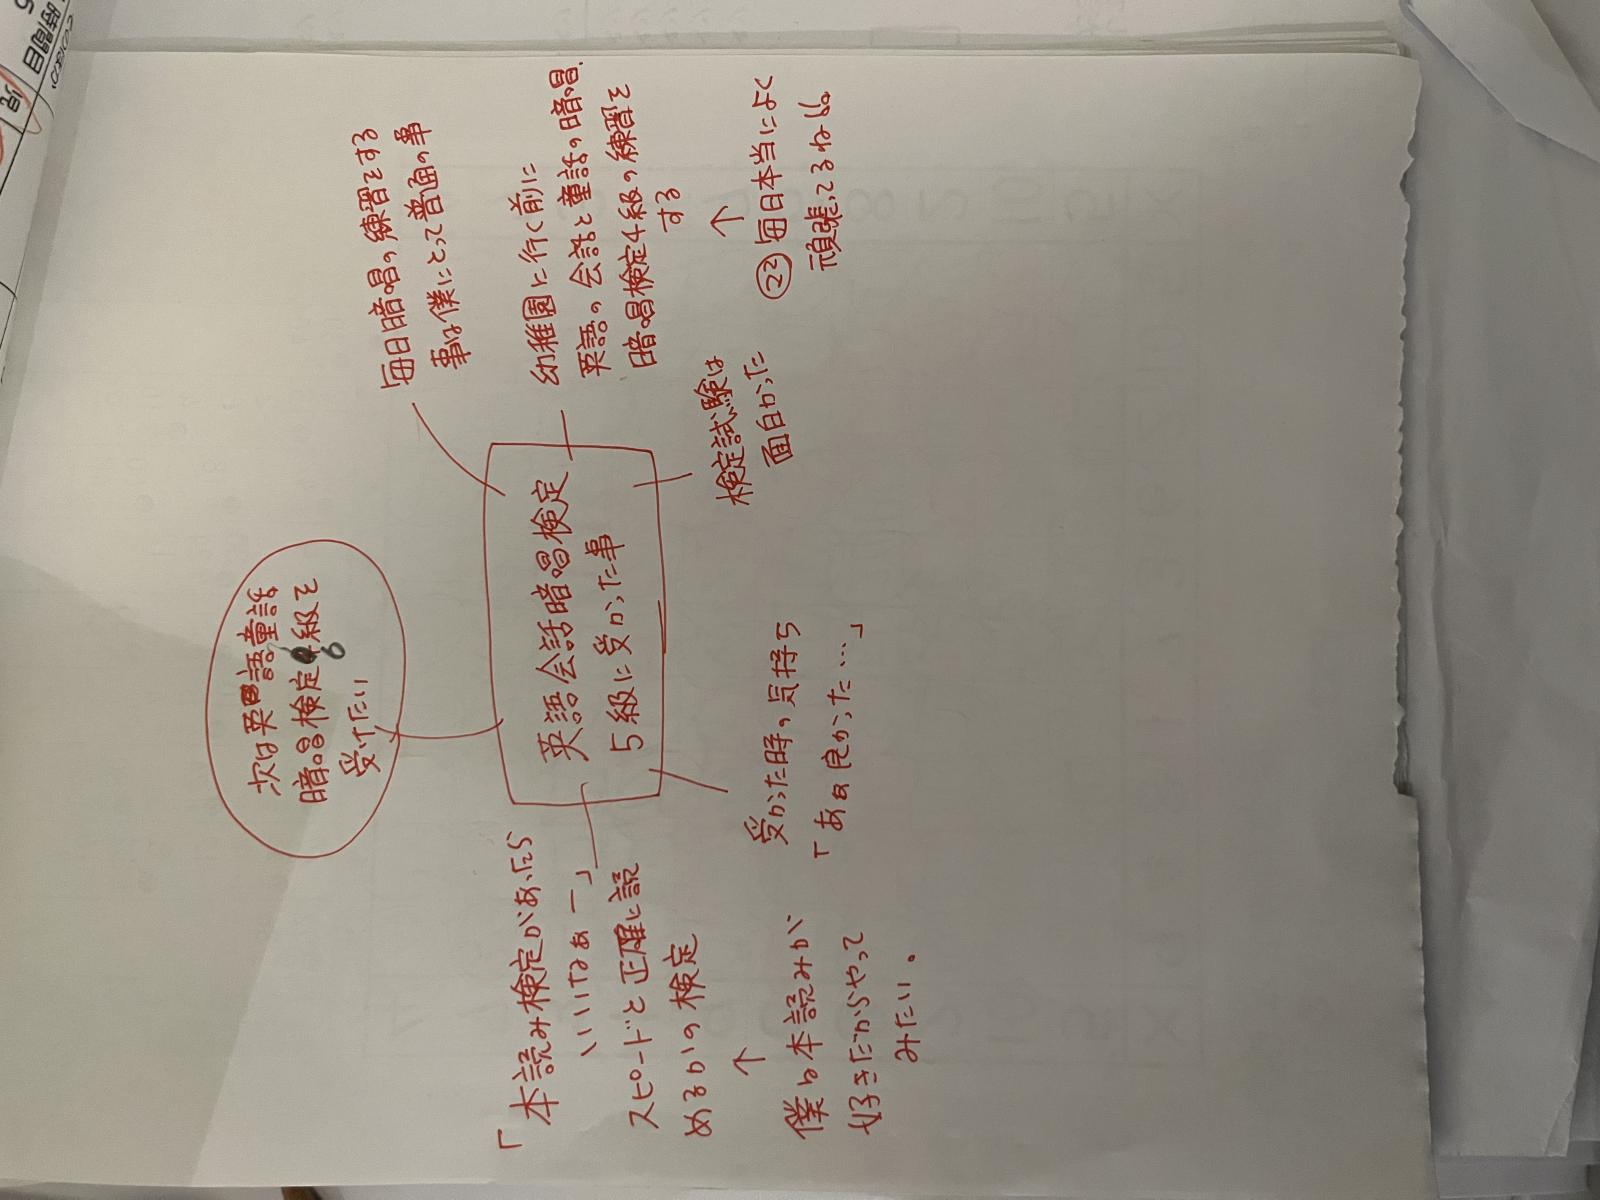 時間目
児
次は英語童話
暗唱検定6級を
受けたい
英語会話暗唱検定
5級に受かった事
毎日暗唱の練習をする
事は僕にとって普通の事
幼稚園に行く前に
英語の会話と童話の暗唱
暗唱検定4級の練習を
する
↑
㉒毎日本当によく
頑張ってるね
検定試験は
面白かった
受かった時の気持ち
「あぁ良かった…」
「本読み検定があったら
いいなぁー」
スピードと正確に読
めるかの検定
↑
僕は本読みが
好きだからやって
みたい。